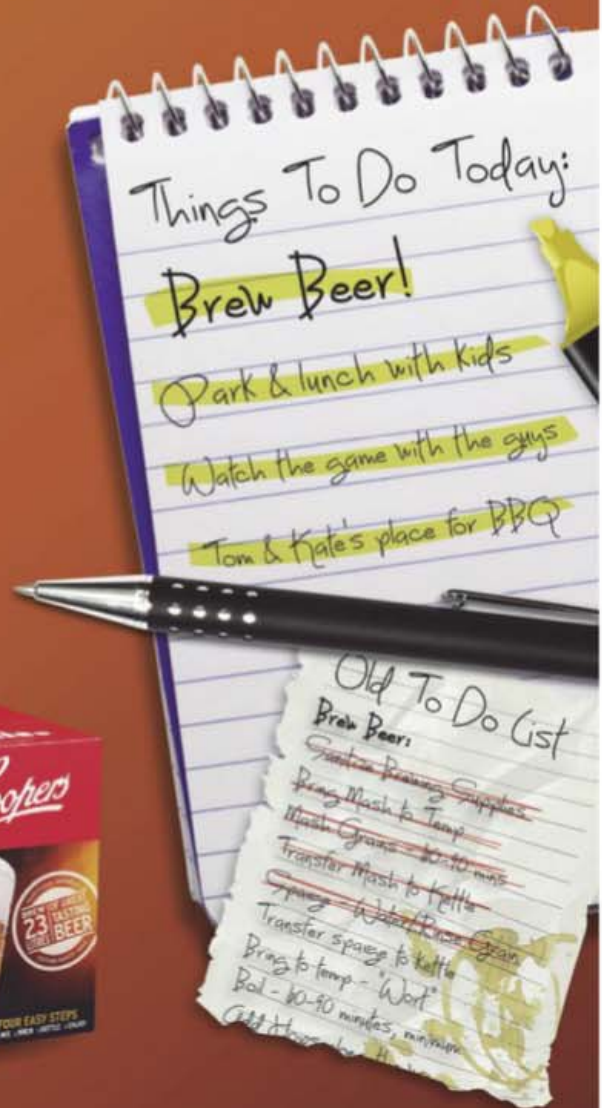 Things To Do Today:
Brew Beer!
Park & lunch with kids
Watch the game with the guys
Tom & Kate's place for BBQ
Old To Do List
Brew Beer:
Sanitize Brewing Supplies
Bring Mash to Temp
Mash Grains - 60-90 mins
Transfer Mash to Kettle
Sparge - Water/Rinse Grain
Transfer sparge to kettle
Bring to temp - "Wort"
Boil - 60-90 minutes, minimum
Add Hops
opers
BREW
23
LITRES
OF GREAT
TASTING
BEER
FOUR EASY STEPS
BREW BOTTLE ENJOY